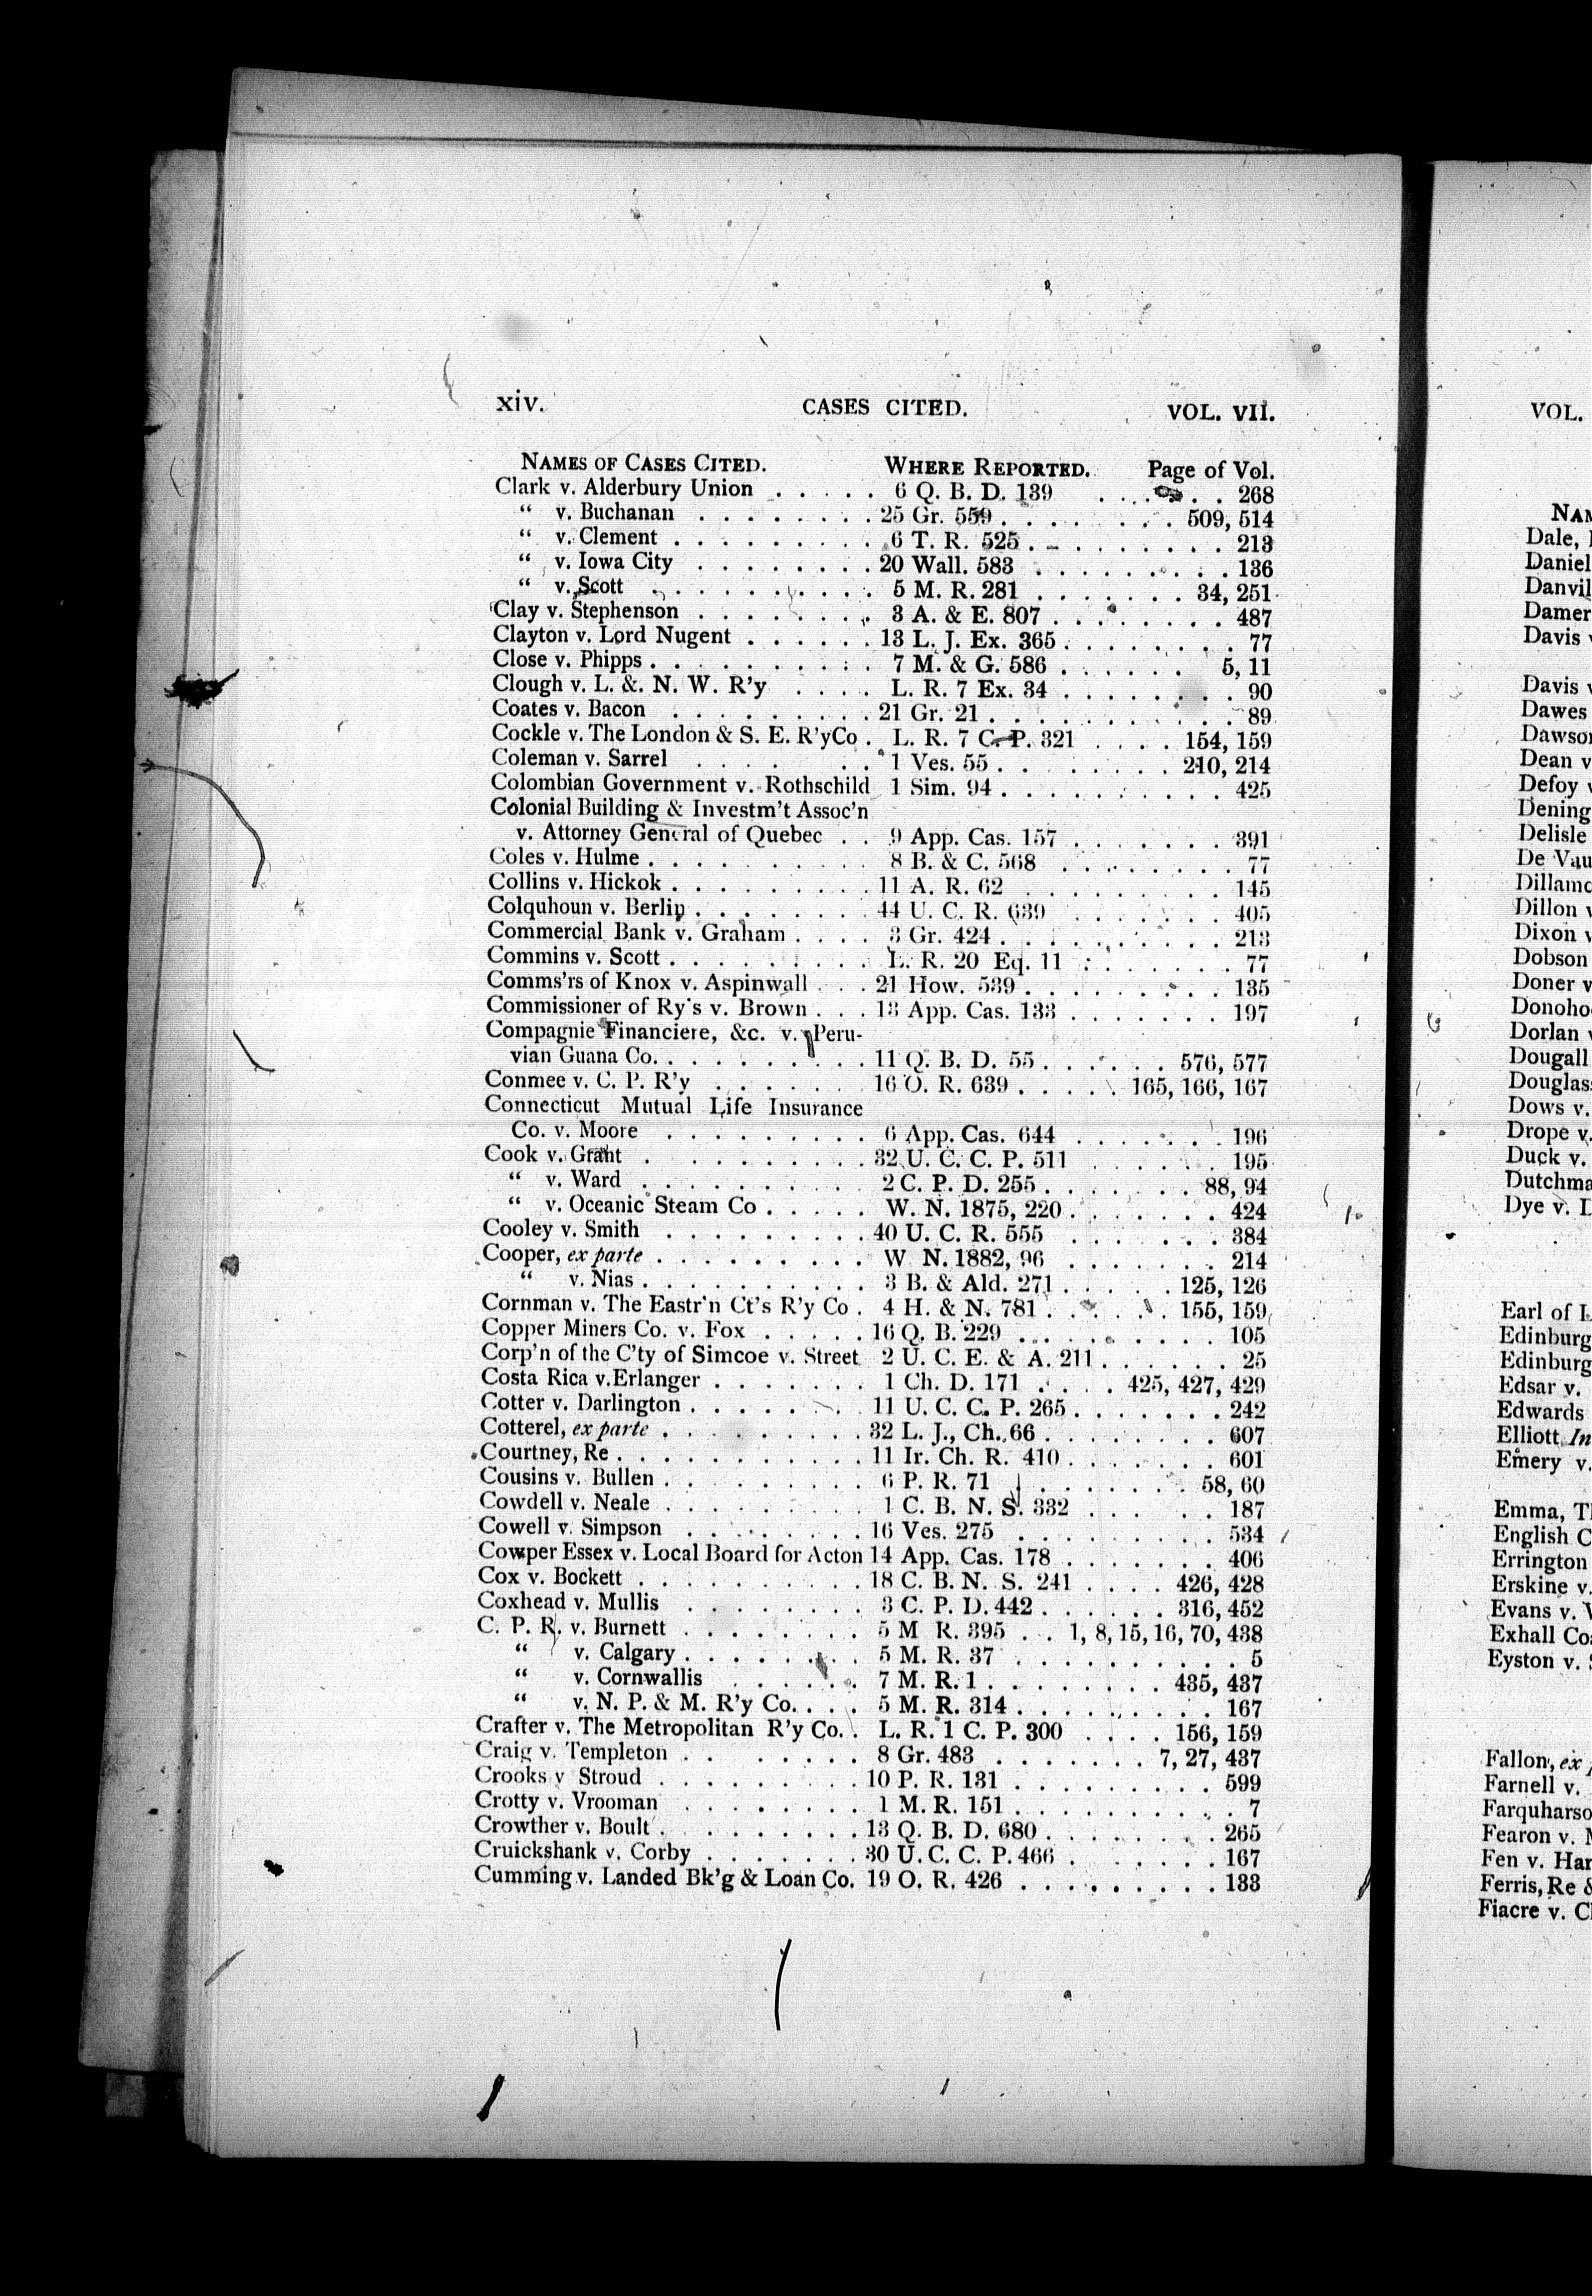 xiv. CASES CITED. VOL. VII.
NAMES OF CASES CITED. WHERE REPORTED. Page of Vol.
Clark v. Alderbury Union . . . . . 6 Q. B. D. 139 . . . . . 268
“ v. Buchanan . . . . . . . . 25 Gr. 559 . . . . . . . . 509, 514
“ v. Clement . . . . . . . . . 6 T. R. 525 . . . . . . . . . 213
“ v. Iowa City . . . . . . . . 20 Wall. 583 . . . . . . . . . 136
“ v. Scott . . . . . . . . . . 5 M. R. 281 . . . . . . . 34, 251
Clay v. Stephenson . . . . . . . . 3 A. & E. 807 . . . . . . . . 487
Clayton v. Lord Nugent . . . . . . 13 L. J. Ex. 365 . . . . . . . . 77
Close v. Phipps . . . . . . . . . . 7 M. & G. 586 . . . . . . 5, 11
Clough v. L. &. N. W. R'y . . . . L. R. 7 Ex. 34 . . . . . . . . 90
Coates v. Bacon . . . . . . . . . 21 Gr. 21 . . . . . . . . . . . 89
Cockle v. The London & S. E. R'yCo . L. R. 7 C. P. 321 . . . . 154, 159
Coleman v. Sarrel . . . . . . 1 Ves. 55 . . . . . . . . 210, 214
Colombian Government v. Rothschild 1 Sim. 94 . . . . . . . . . . 425
Colonial Building & Investm't Assoc'n
v. Attorney General of Quebec . . 9 App. Cas. 157 . . . . . . . 391
Coles v. Hulme . . . . . . . . . . 8 B. & C. 568 . . . . . . . . 77
Collins v. Hickok . . . . . . . . . 11 A. R. 62 . . . . . . . . . 145
Colquhoun v. Berlin . . . . . . . . 44 U. C. R. 639 . . . . . . . 405
Commercial Bank v. Graham . . . . 3 Gr. 424 . . . . . . . . . . 213
Commins v. Scott . . . . . . . . . L. R. 20 Eq. 11 . . . . . . . 77
Comms'rs of Knox v. Aspinwall . . . 21 How. 539 . . . . . . . . . 135
Commissioner of Ry's v. Brown . . . 13 App. Cas. 133 . . . . . . . 197
Compagnie Financiere, &c. v. Peru-
vian Guana Co. . . . . . . . . . 11 Q. B. D. 55 . . . . . . . 576, 577
Conmee v. C. P. R'y . . . . . . . 16 O. R. 639 . . . . . 165, 166, 167
Connecticut Mutual Life Insurance
Co. v. Moore . . . . . . . . . 6 App. Cas. 644 . . . . . . . 196
Cook v. Grant . . . . . . . . . . 32 U. C. C. P. 511 . . . . . . 195
“ v. Ward . . . . . . . . . . 2 C. P. D. 255 . . . . . . . 88, 94
“ v. Oceanic Steam Co . . . . . W. N. 1875, 220 . . . . . . . 424
Cooley v. Smith . . . . . . . . . 40 U. C. R. 555 . . . . . . . 384
Cooper, ex parte . . . . . . . . . W N. 1882, 96 . . . . . . . 214
“ v. Nias . . . . . . . . . . 3 B. & Ald. 271 . . . . . . 125, 126
Cornman v. The Eastr'n Ct's R'y Co . 4 H. & N. 781 . . . . . . 155, 159
Copper Miners Co. v. Fox . . . . . 16 Q. B. 229 . . . . . . . . . 105
Corp'n of the C'ty of Simcoe v. Street 2 U. C. E. & A. 211 . . . . . . 25
Costa Rica v.Erlanger . . . . . . . 1 Ch. D. 171 . . . . 425, 427, 429
Cotter v. Darlington . . . . . . . 11 U. C. C. P. 265 . . . . . . . 242
Cotterel, ex parte . . . . . . . . . 32 L. J., Ch. 66 . . . . . . . . 607
Courtney, Re . . . . . . . . . . . 11 Ir. Ch. R. 410 . . . . . . . 601
Cousins v. Bullen . . . . . . . . . 6 P. R. 71 . . . . . . . 58, 60
Cowdell v. Neale . . . . . . . . . 1 C. B. N. S. 332 . . . . . . 187
Cowell v. Simpson . . . . . . . . 16 Ves. 275 . . . . . . . . . 534
Cowper Essex v. Local Board for Acton 14 App. Cas. 178 . . . . . . . 406
Cox v. Bockett . . . . . . . . . . 18 C. B. N. S. 241 . . . . 426, 428
Coxhead v. Mullis . . . . . . . . 3 C. P. D. 442 . . . . . . 316, 452
C. P. R. v. Burnett . . . . . . . . 5 M R. 395 . . 1, 8, 15, 16, 70, 438
“ v. Calgary . . . . . . . . 5 M. R. 37 . . . . . . . . . . 5
“ v. Cornwallis . . . . . . 7 M. R. 1 . . . . . . . . 435, 437
“ v. N. P. & M. R'y Co. . . . 5 M. R. 314 . . . . . . . . . 167
Crafter v. The Metropolitan R'y Co. . L. R. 1 C. P. 300 . . . . 156, 159
Craig v. Templeton . . . . . . . 8 Gr. 483 . . . . . . . 7, 27, 437
Crooks v Stroud . . . . . . . . . 10 P. R. 131 . . . . . . . . . 599
Crotty v. Vrooman . . . . . . . . 1 M. R. 151 . . . . . . . . . . 7
Crowther v. Boult . . . . . . . . . 13 Q. B. D. 680 . . . . . . . . 265
Cruickshank v. Corby . . . . . . . 30 U. C. C. P. 466 . . . . . . . 167
Cumming v. Landed Bk'g & Loan Co. 19 O. R. 426 . . . . . . . . . 133
VOL.
Dale,
Daniel
Davis
Davis
Dawes
Dean v
Defoy
Delisle
De
Dillon
Dixon
Dobson
Doner v
Dorlan
Dougall
Dows v.
Drope v.
Duck v.
Dye v.
Earl of
Edsar v.
Edwards
Elliott
Emery v.
Emma,
English
Errington
Erskine v.
Evans v.
Exhall
Eyston v.
Fallon, ex
Farnell v.
Fearon v.
Fen v.
Ferris, Re
Fiacre v.